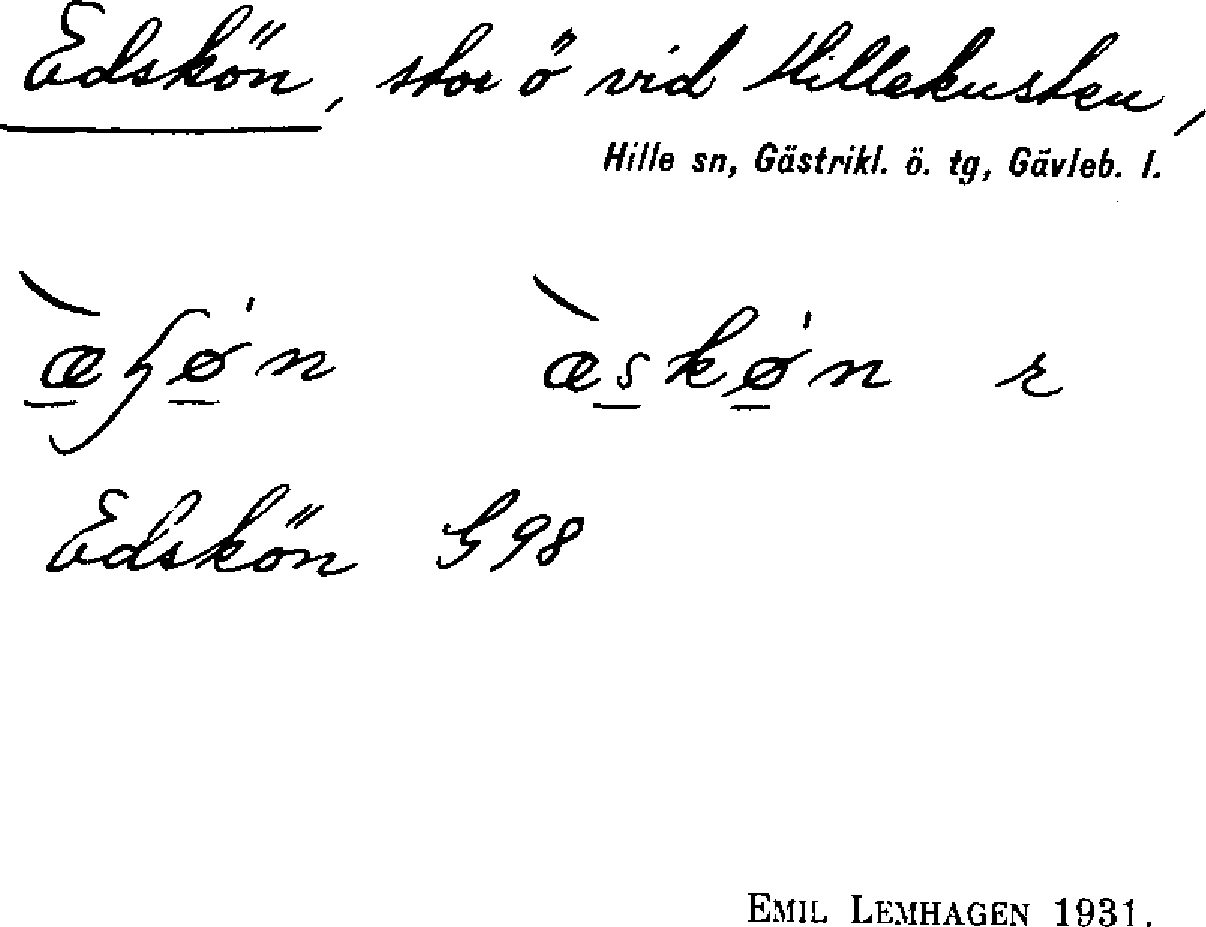 Edskön, stor ö vid Hillekusten,
Hille sn, Gästrikl. ö. tg, Gävleb. l.
æ̀ɧø̀n æ̀skø̀n r
Edskön G98
EMIL LEMHAGEN 1931.